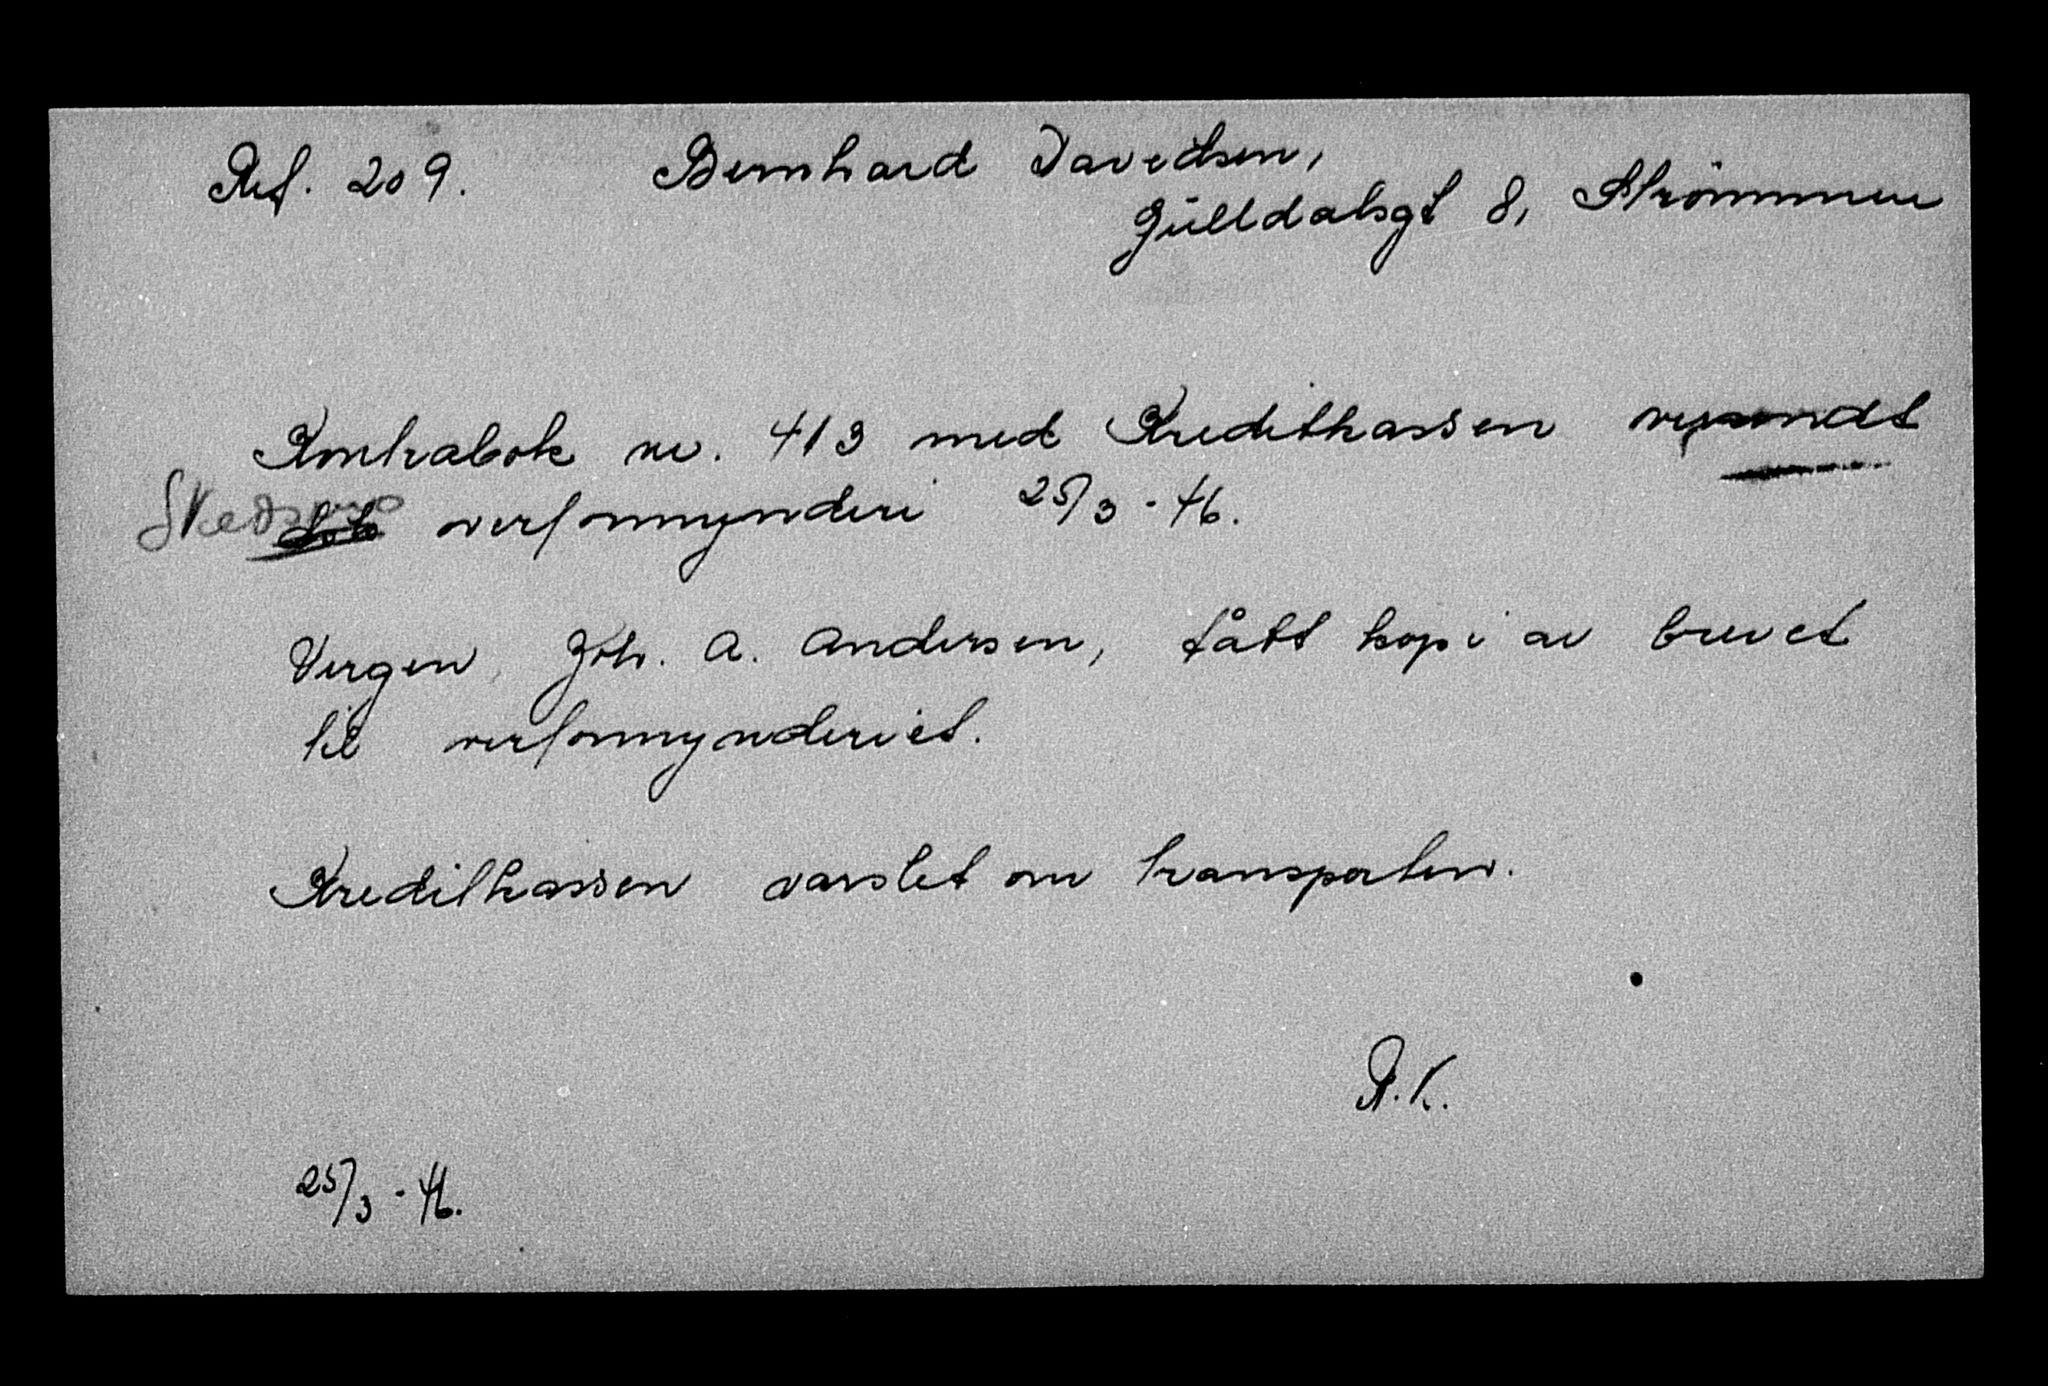 Ref. 209. Bernhard Davidsen,
Gulldalsgt 8, Strömmen
Kontrabok nr. 413 med Kreditkassen oversendt
Skedsmo overformynderi 25/3 - 46.
Vergen, Joh. A. Andersen, fått kopi av brevet
til overformynderiet.
Kreditkassen varslet om transporten.
R.K.
25/3 - 46.